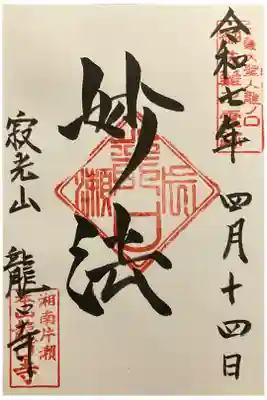 令和七年 四月十四日
聖人龍ノ口
妙法
片瀬
龍口
寂光山 龍口寺
湘南片瀬
本山龍口寺